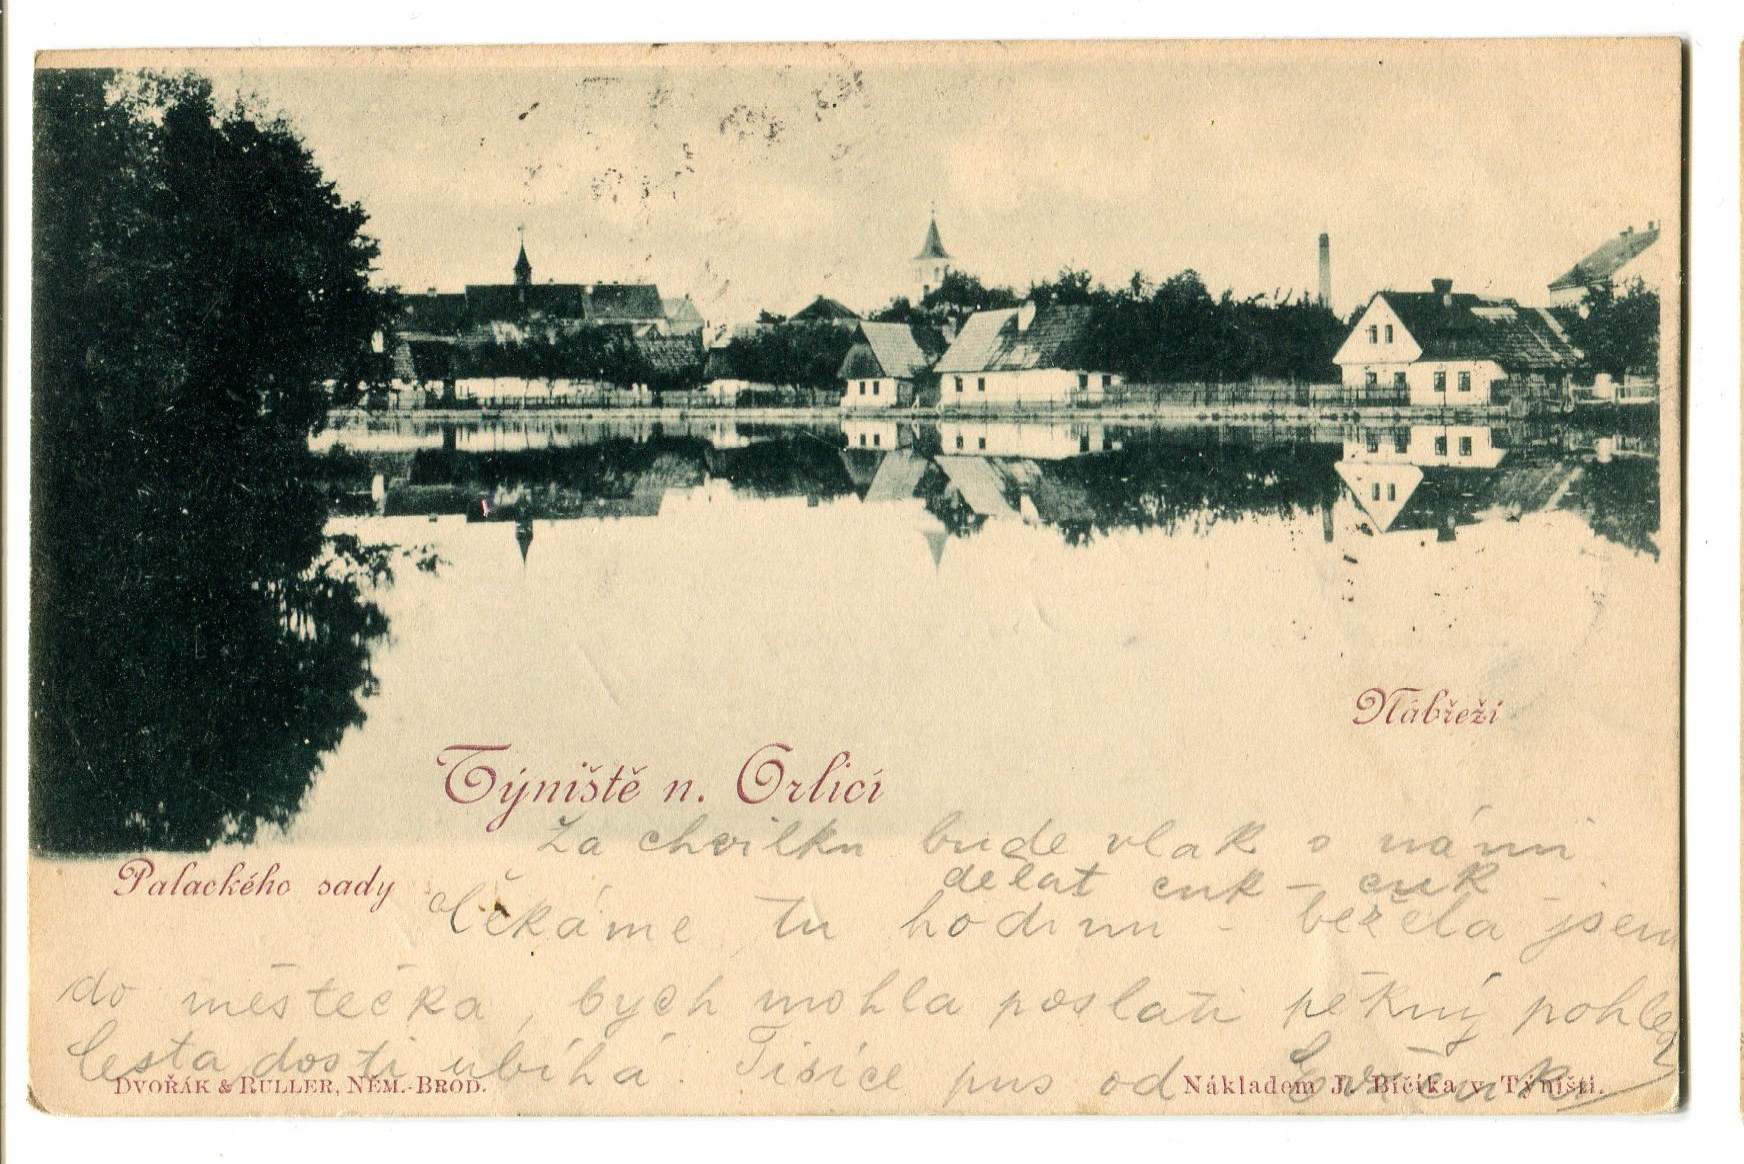 Nábřeží
Týniště n. Orlicí
Za chvilku bude vlak s námi
Palackého sady
dělat cuk - cuk
Čekáme tu hodinu - běžela jsem
do městečka, bych mohla poslati pěkný pohled
Cesta dosti ubíhá. Tisíce pus od
DVOŘÁK & RULLER, NĚM.-BROD.
Nákladem J. Bičíka v Týništi.